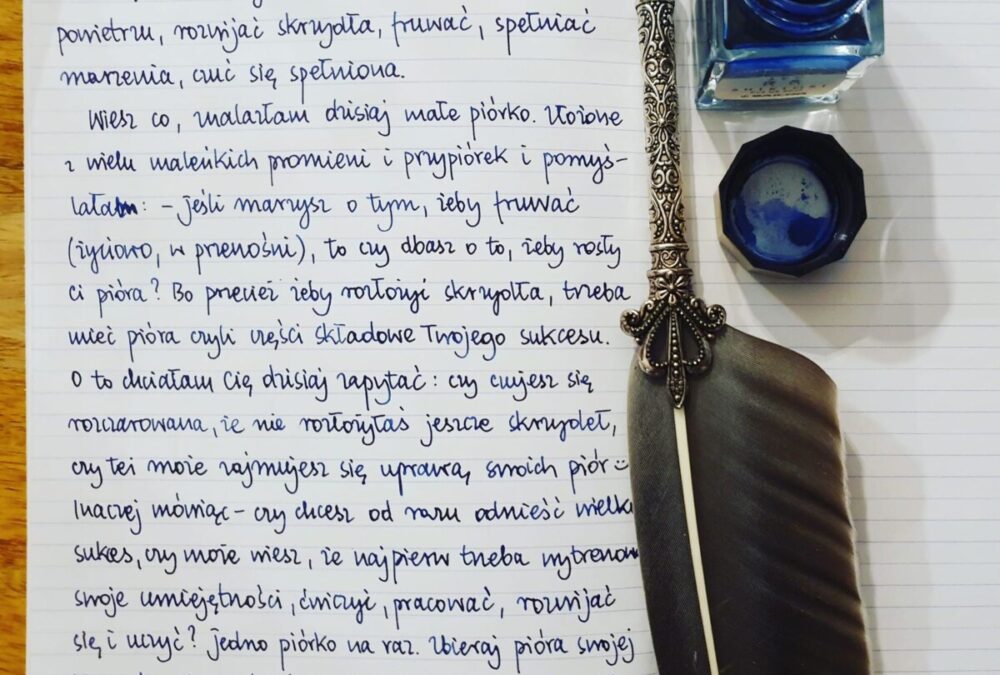 powietrzu, rozwijać skrzydła, fruwać, spełniać
marzenia, czuć się spełniona.
Wiesz co, znalazłam dzisiaj małe piórko. Złożone
z wielu maleńkich promieni i przypiórek i pomyś-
lałam: - jeśli marzysz o tym, żeby fruwać
(życiowo, w przenośni), to czy dbasz o to, żeby rosły
ci pióra? Bo przecież żeby rozłożyć skrzydła, trzeba
mieć pióra czyli części składowe Twojego sukcesu.
O to chciałam Cię dzisiaj zapytać: czy czujesz się
rozczarowana, że nie rozłożyłaś jeszcze skrzydeł,
czy też może zajmujesz się uprawą swoich piór :)
Inaczej mówiąc - czy chcesz od razu odnieść wielki
sukces, czy może wiesz, że najpierw trzeba wytrenow
swoje umiejętności, ćwiczyć, pracować, rozwijać
się i uczyć? Jedno piórko na raz. Zbieraj pióra swojej